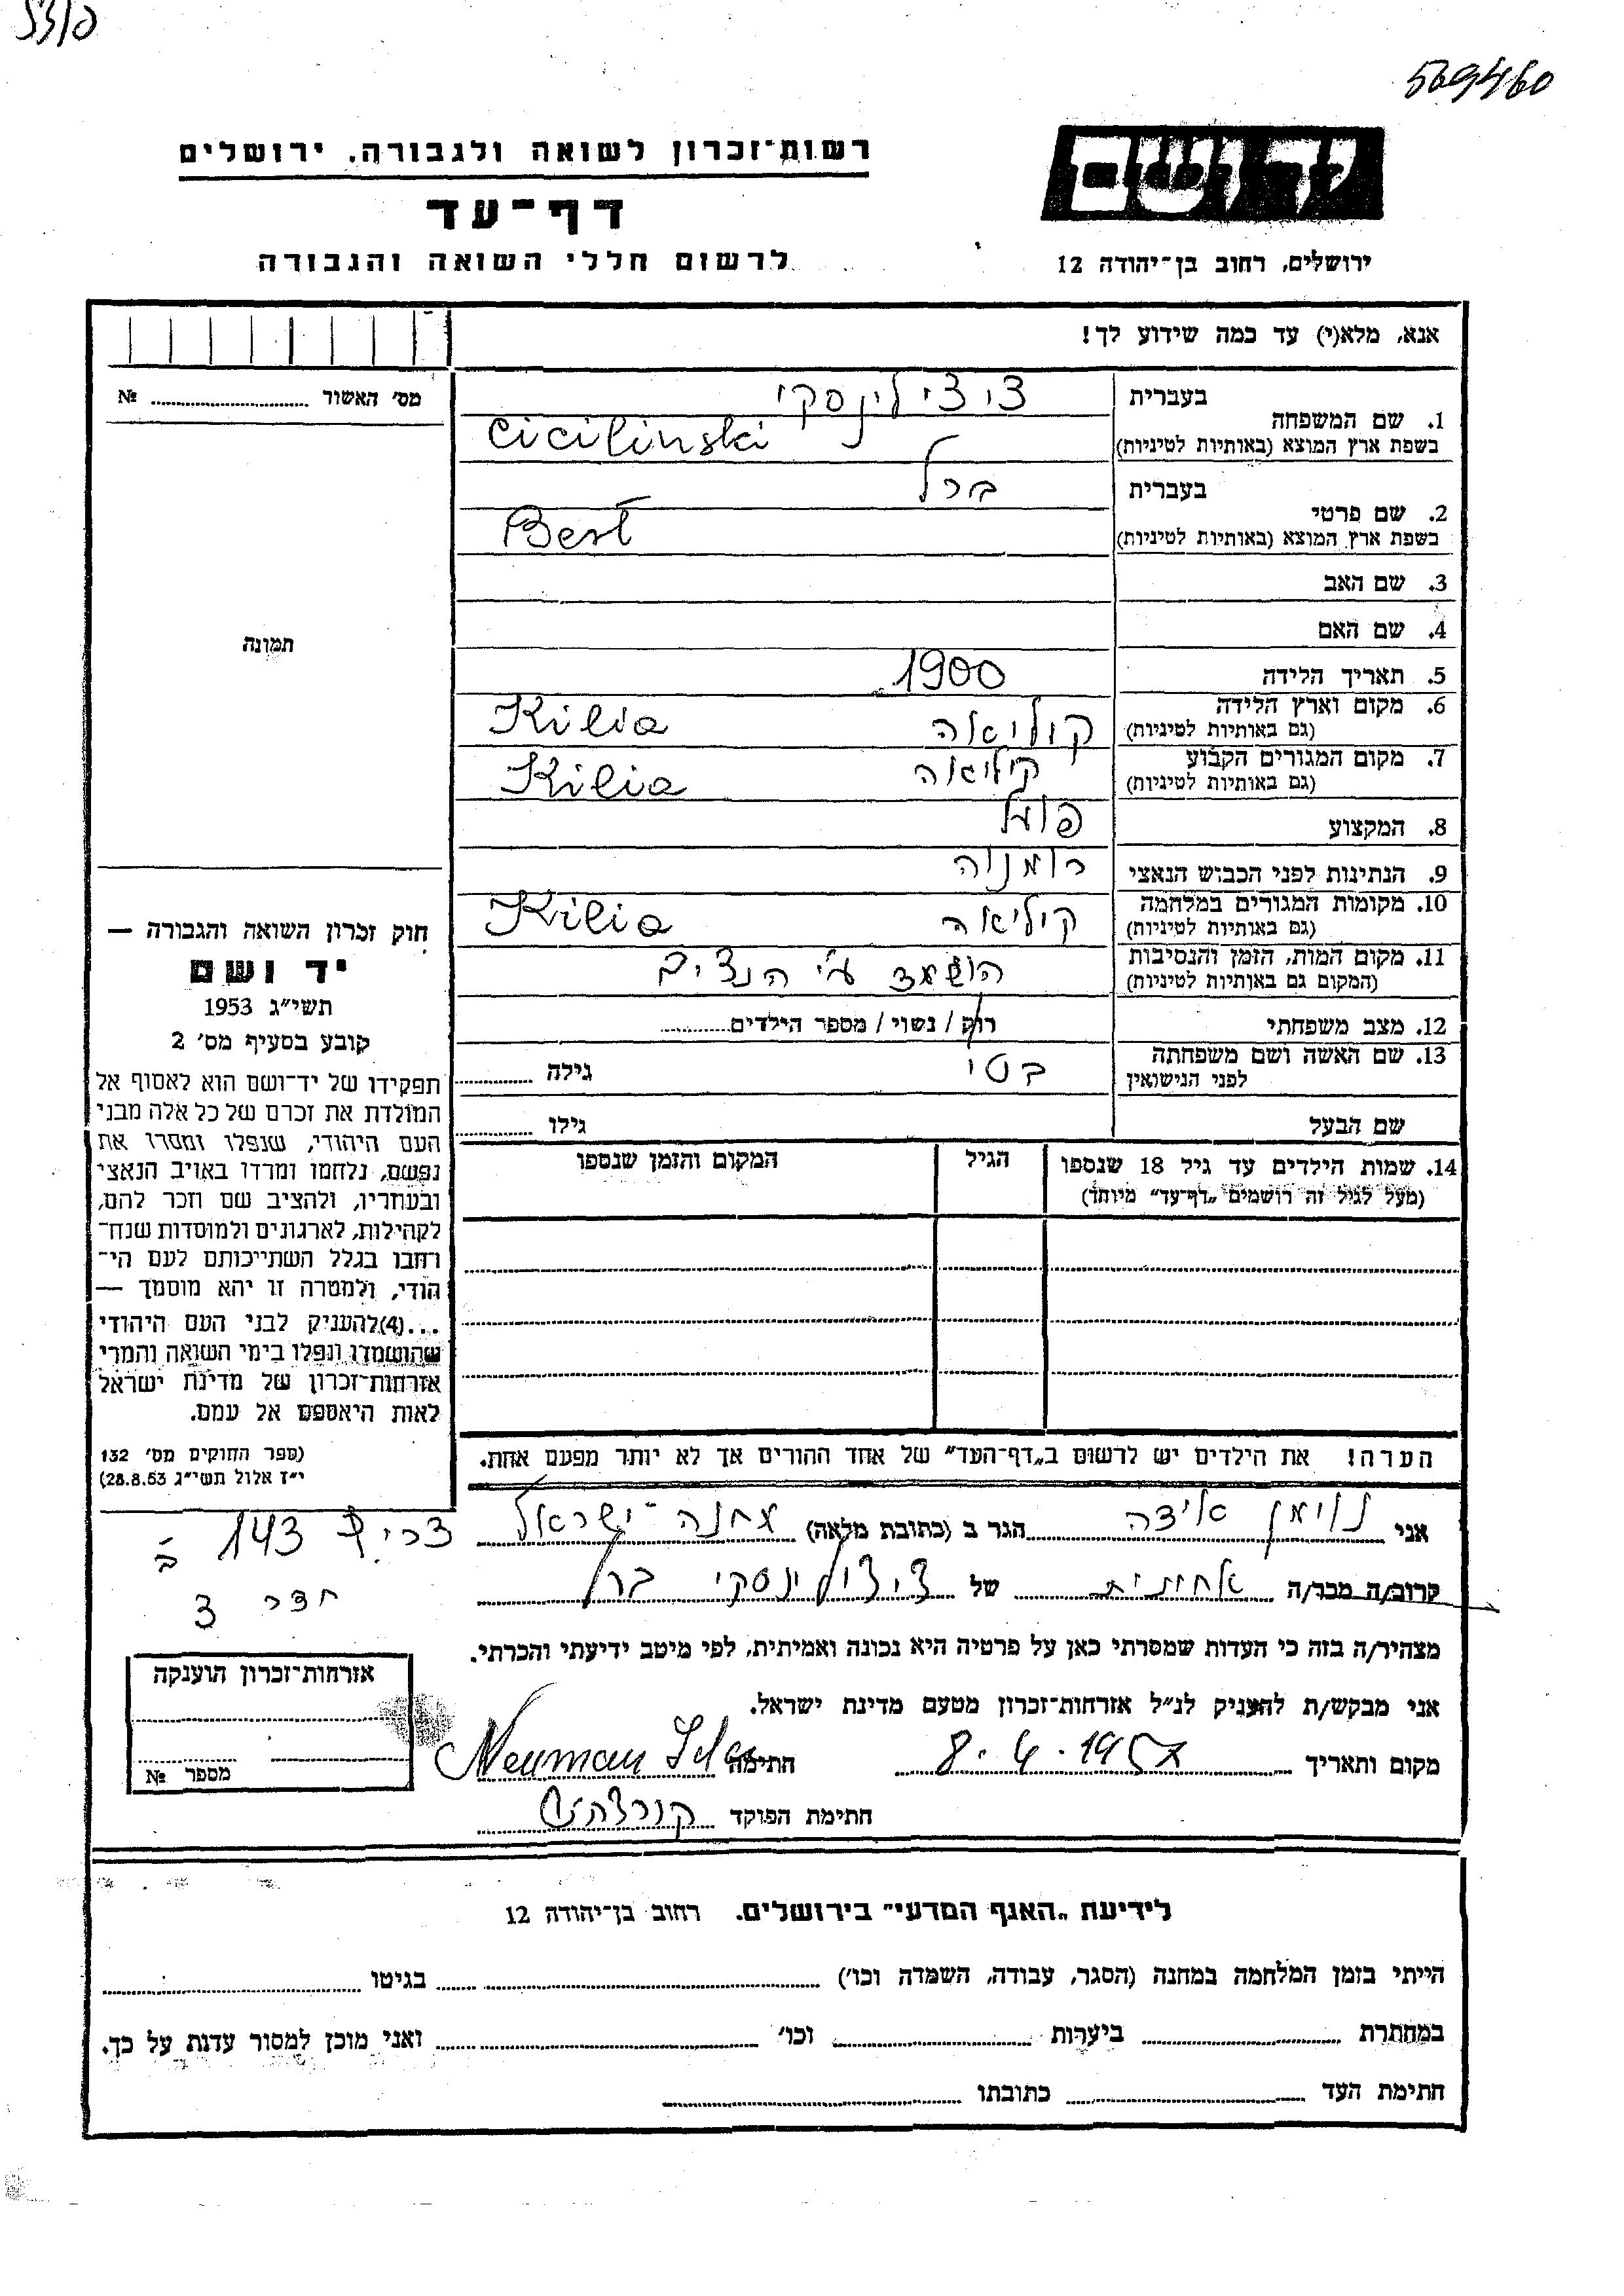 569460
רשות־זכרון לשואה ולגבורה. ירושלים
דף־עד
לרשום חללי השואה והגבורה
יד ושם
ירושלים, רחוב בן־יהודה 12
אנא, מלא(י) עד כמה שידוע לך!
מס׳ האשור № 
תמונה
חוק זכרון השואה והגבורה —
יד ושם
תשי״ג 1953
קובע בסעיף מס׳ 2
תפקידו של יד־ושם הוא לאסוף אל
המולדת את זכרם של כל אלה מבני
העם היהודי, שנפלו ומסרו את
נפשם, נלחמו ומרדו באויב הנאצי
ובעוזריו, ולהציב שם וזכר להם,
לקהילות, לארגונים ולמוסדות שנח־
רחבו בגלל השתייכותם לעם הי־
הודי, ולמטרה זו יהא מוסמך —
...(4) להעניק לבני העם היהודי
שהושמדו ונפלו בימי השואה והמרי
אזרחות־זכרון של מדינת ישראל
לאות היאספם אל עמם.
(ספר החוקים מס׳ 132
י״ז אלול תשי״ג 28.8.53)
בעברית ציצילינסקי
1. שם המשפחה
בשפת ארץ המוצא (באותיות לטיניות) Cicilinski
בעברית ברל
2. שם פרטי
בשפת ארץ המוצא (באותיות לטיניות) Berl
3. שם האב
4. שם האם
5. תאריך הלידה 1900
6. מקום וארץ הלידה קיליאה Kilia
(גם באותיות לטיניות)
7. מקום המגורים הקבוע קיליאה Kilia
(גם באותיות לטיניות)
8. המקצוע פועל
9. הנתינות לפני הכבוש הנאצי
10. מקומות המגורים במלחמה קיליאה Kilia
(גם באותיות לטיניות)
11. מקום המות, הזמן והנסיבות הושמד ע״י הנצים
(המקום גם באותיות לטיניות)
12. מצב משפחתי רווק / נשוי / מספר הילדים
13. שם האשה ושם משפחתה בטי גילה
לפני הנישואין
שם הבעל גילו
14. שמות הילדים עד גיל 18 שנספו הגיל המקום והזמן שנספו
(מעל לגיל זה רושמים „דף־עד״ מיוחד)
הערה! את הילדים יש לרשום ב„דף־העד״ של אחד ההורים אך לא יותר מפעם אחת.
אני נוימן אידה הגר ב (כתובת מלאה) מחנה ישראל צריף 143 ב
חדר 3
קרוב/ה מכר/ה של ציצילינסקי ברל
מצהיר/ה בזה כי העדות שמסרתי כאן על פרטיה היא נכונה ואמיתית, לפי מיטב ידיעתי והכרתי.
אני מבקש/ת להעניק לנ״ל אזרחות־זכרון מטעם מדינת ישראל.
מקום ותאריך חתימה Neuman
חתימת הפוקד
אזרחות־זכרון הוענקה
מספר №
לידיעת „האגף המדעי״ בירושלים. רחוב בן־יהודה 12
הייתי בזמן המלחמה במחנה (הסגר, עבודה, השמדה וכו׳) בגיטו
במחתרת ביערות וכו׳ ואני מוכן למסור עדות על כך.
חתימת העד כתובתו